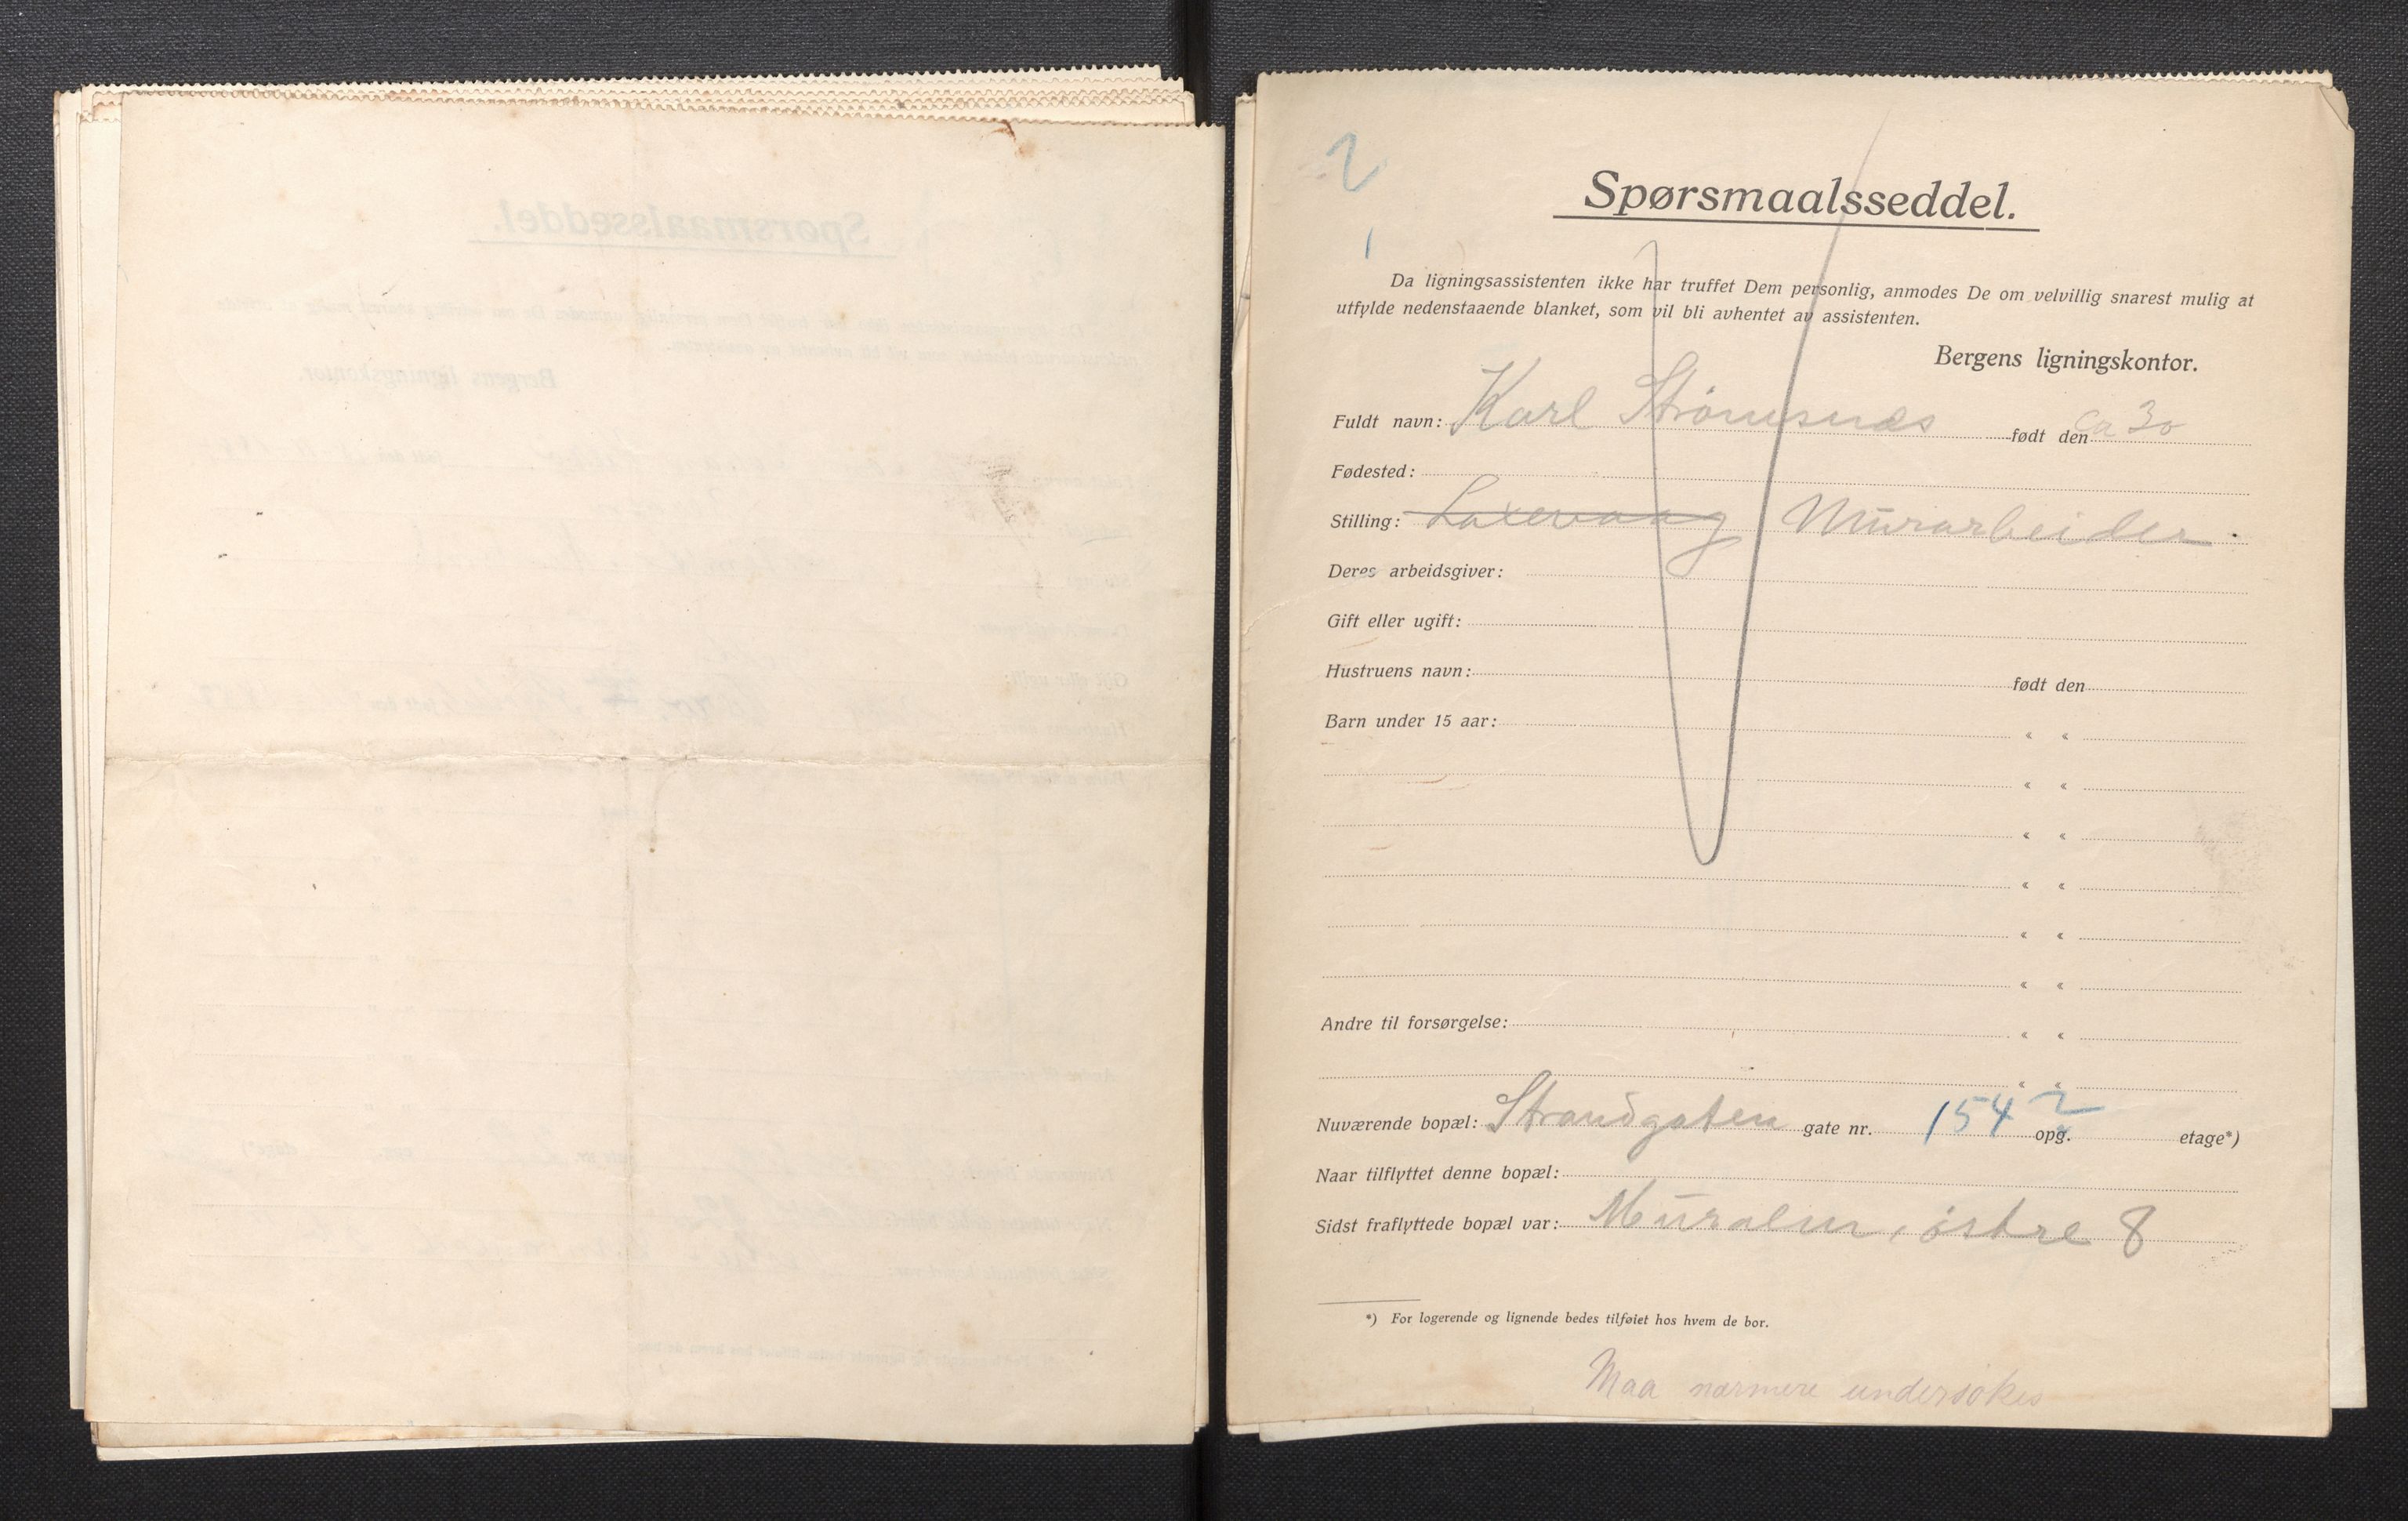 2
Spørsmaalsseddel.
Da ligningsassistenten ikke har truffet Dem personlig, anmodes De om velvillig snarest mulig at
utfylde nedenstaaende blanket, som vil bli avhentet av assistenten.
Bergens ligningskontor.
Fuldt navn: Karl Strømsnæs født den ca 30
Fødested:
Stilling: Laxevaag Murarbeider.
Deres arbeidsgiver:
Gift eller ugift:
Hustruens navn: født den
Barn under 15 aar: « «
« «
« «
« «
« «
« «
Andre til forsørgelse: « «
« «
Nuværende bopæl: Strandgaten gate nr. 154 2 opg. etage*)
Naar tilflyttet denne bopæl:
Sidst fraflyttede bopæl var: Muralm. østre 8
*) For logerende og lignende bedes tilføiet hos hvem de bor.
Maa nærmere undersøkes